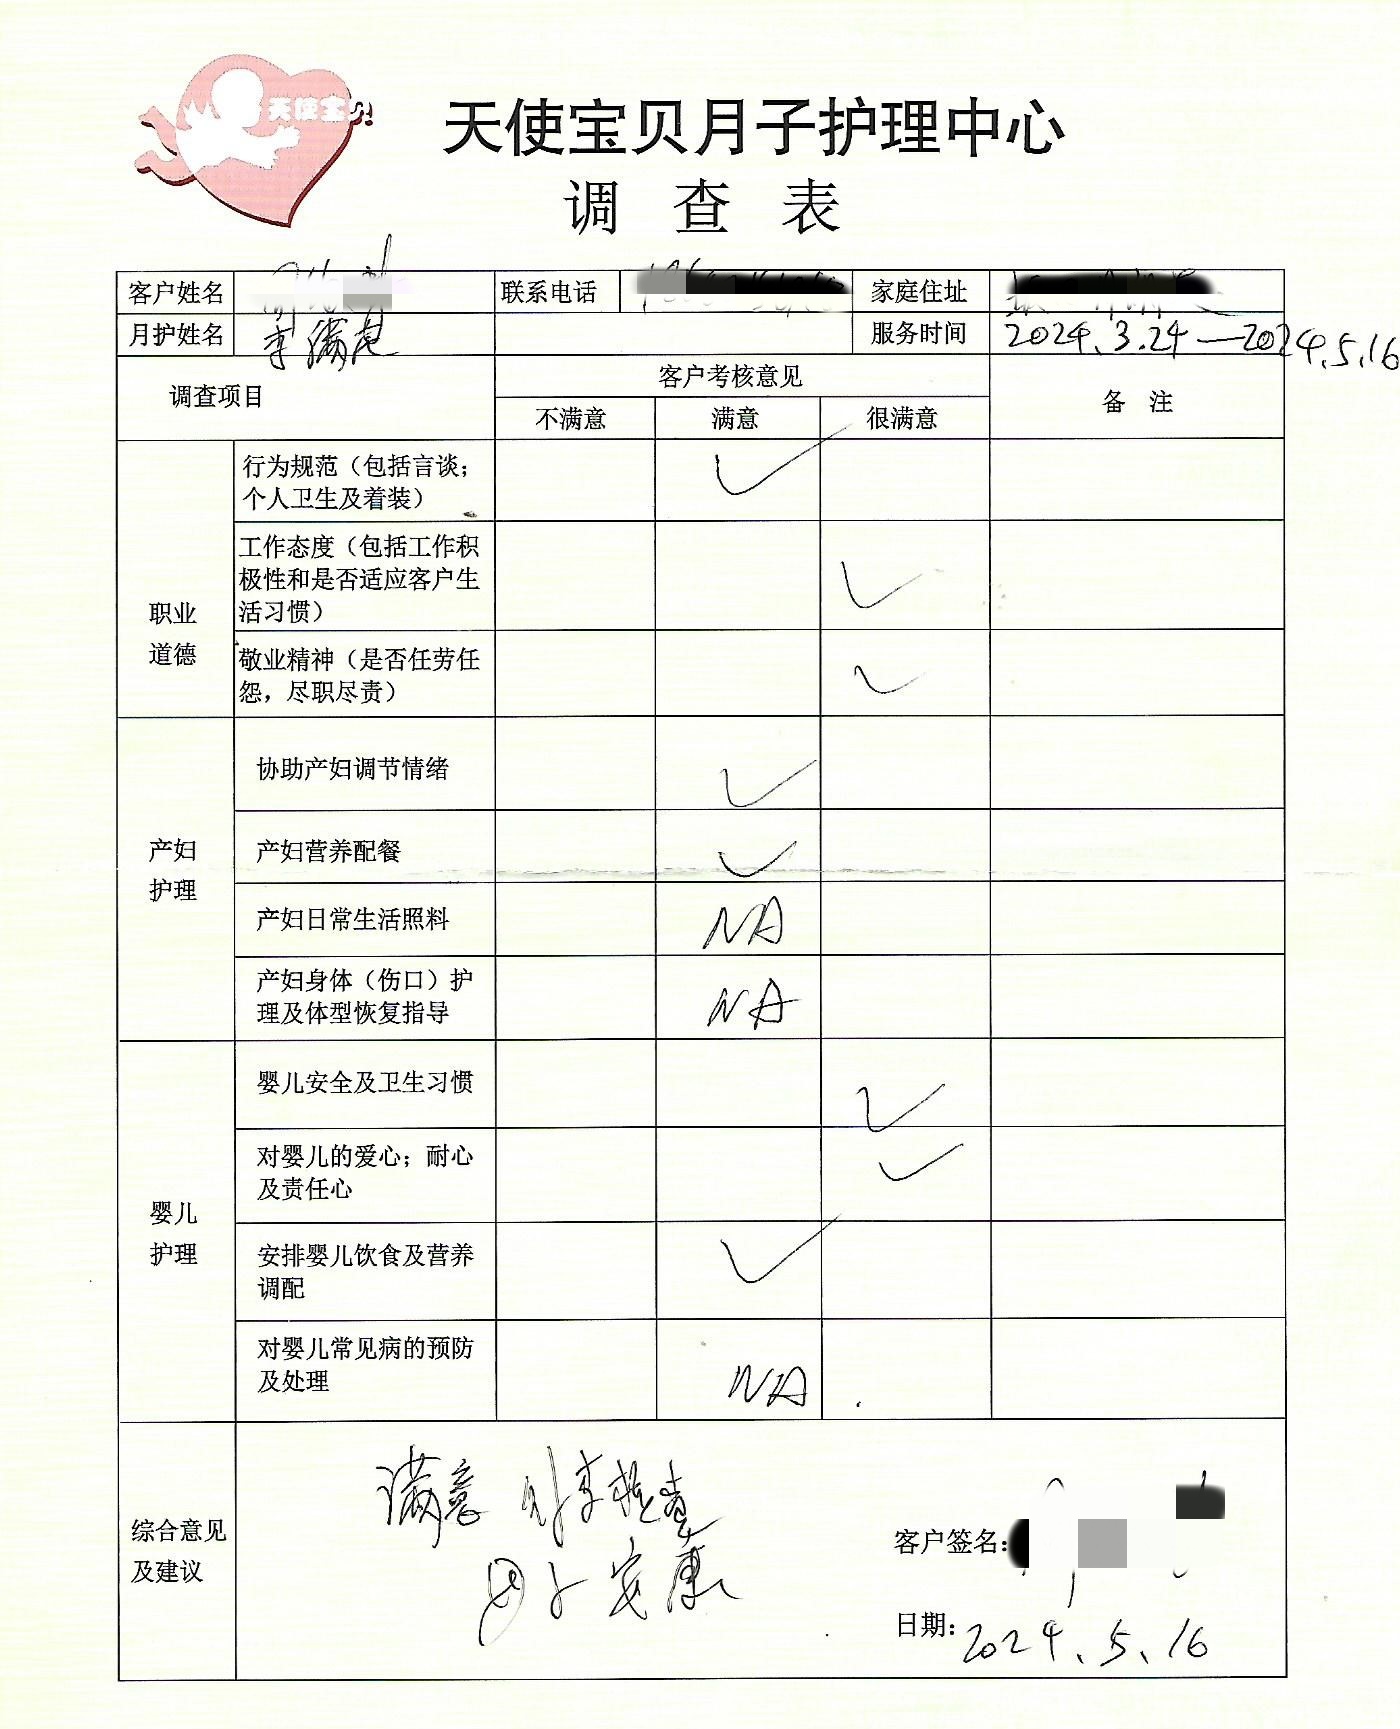 天使宝贝
天使宝贝月子护理中心
调 查 表
客户姓名 联系电话 家庭住址
月护姓名 李满 服务时间 2024.3.24—2024.5.16
调查项目 客户考核意见 备 注
不满意 满意 很满意
职业
道德
行为规范（包括言谈；
个人卫生及着装） ✓
工作态度（包括工作积
极性和是否适应客户生
活习惯） ✓
敬业精神（是否任劳任
怨，尽职尽责） ✓
产妇
护理
协助产妇调节情绪 ✓
产妇营养配餐 ✓
产妇日常生活照料 NA
产妇身体（伤口）护
理及体型恢复指导 NA
婴儿
护理
婴儿安全及卫生习惯 ✓
对婴儿的爱心；耐心
及责任心 ✓
安排婴儿饮食及营养
调配 ✓
对婴儿常见病的预防
及处理 NA
综合意见
及建议
满意
母子安康
客户签名：
日期：2024.5.16